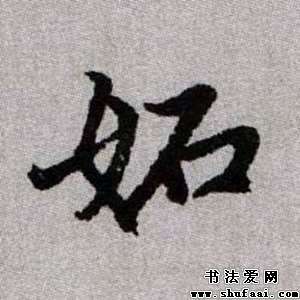 妬
书法爱网
www.shufaai.com